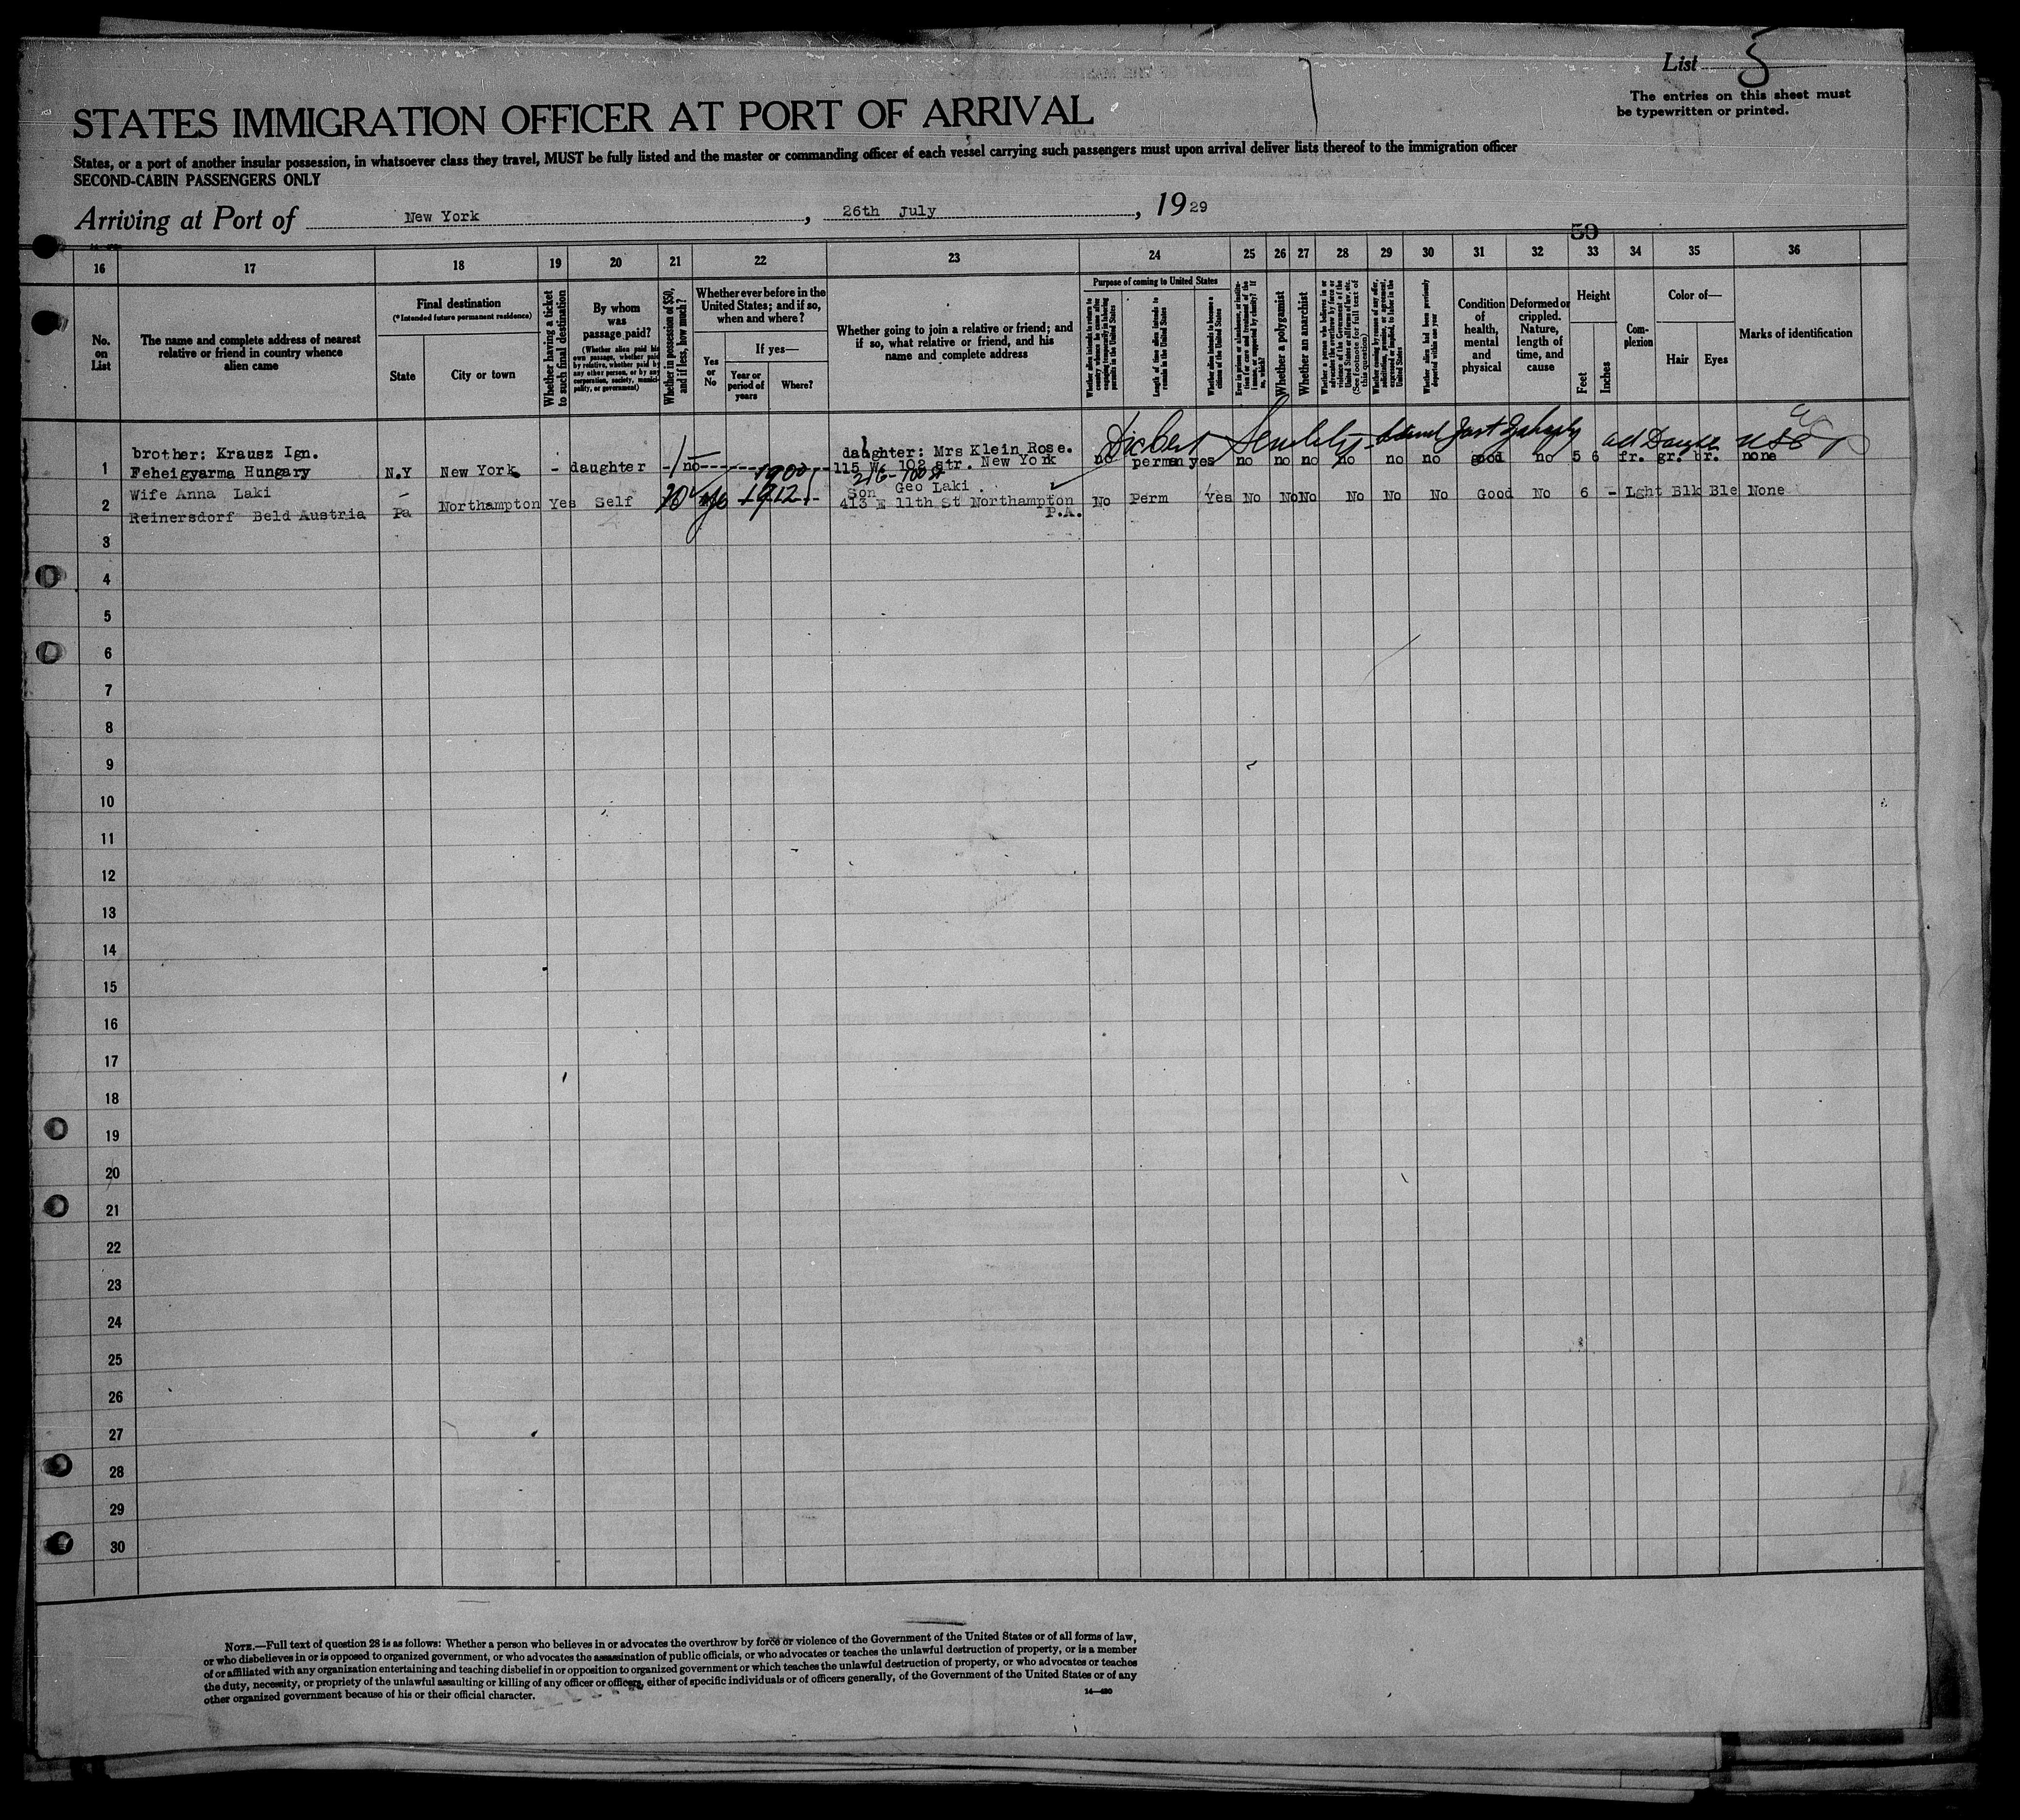 List 5
The entries on this sheet must
be typewritten or printed.
STATES IMMIGRATION OFFICER AT PORT OF ARRIVAL
States, or a port of another insular possession, in whatsoever class they travel, MUST be fully listed and the master or commanding officer of each vessel carrying such passengers must upon arrival deliver lists thereof to the immigration officer
SECOND-CABIN PASSENGERS ONLY
Arriving at Port of New York, 26th July, 1929
59
16 17 18 19 20 21 22 23 24 25 26 27 28 29 30 31 32 33 34 35 36
No. on List
The name and complete address of nearest relative or friend in country whence alien came
Final destination
(*Intended future permanent residence)
State
City or town
Whether having a ticket to such final destination
By whom was passage paid?
(Whether alien paid his own passage, whether paid by relative, whether paid by any other person, or by any corporation, society, municipality, or government)
Whether in possession of $50, and if less, how much?
Whether ever before in the United States; and if so, when and where?
Yes or No
If yes—
Year or period of years
Where?
Whether going to join a relative or friend; and if so, what relative or friend, and his name and complete address
Purpose of coming to United States
Length of time alien intends to remain in the United States
Whether alien intends to become a citizen of the United States
Whether a polygamist
Whether an anarchist
(See footnote for full text of this question)
Whether alien had been previously deported within one year
Condition of health, mental and physical
Deformed or crippled. Nature, length of time, and cause
Height
Feet
Inches
Complexion
Color of—
Hair
Eyes
Marks of identification
brother: Krausz Ign.
daughter: Mrs Klein Rose.
1 Feheigyarma Hungary N.Y New York - daughter - no 1900 115 W. 102 str. New York no perman yes no no no no no no good no 5 6 fr. gr. br. none
216-100 St
Wife Anna Laki
Son Geo Laki
2 Reinersdorf Beld Austria Pa Northampton Yes Self 20 yes 1912 413 E 11th St Northampton P.A. No Perm Yes No No No No No No Good No 6 - Lght Blk Ble None
3
4
5
6
7
8
9
10
11
12
13
14
15
16
17
18
19
20
21
22
23
24
25
26
27
28
29
30
NOTE.—Full text of question 28 is as follows: Whether a person who believes in or advocates the overthrow by force or violence of the Government of the United States or of all forms of law,
or who disbelieves in or is opposed to organized government, or who advocates the assassination of public officials, or who advocates or teaches the unlawful destruction of property, or is a member
of or affiliated with any organization entertaining and teaching disbelief in or opposition to organized government or which teaches the unlawful destruction of property, or who advocates or teaches
the duty, necessity, or propriety of the unlawful assaulting or killing of any officer or officers, either of specific individuals or of officers generally, of the Government of the United States or of any
other organized government because of his or their official character.
14—430